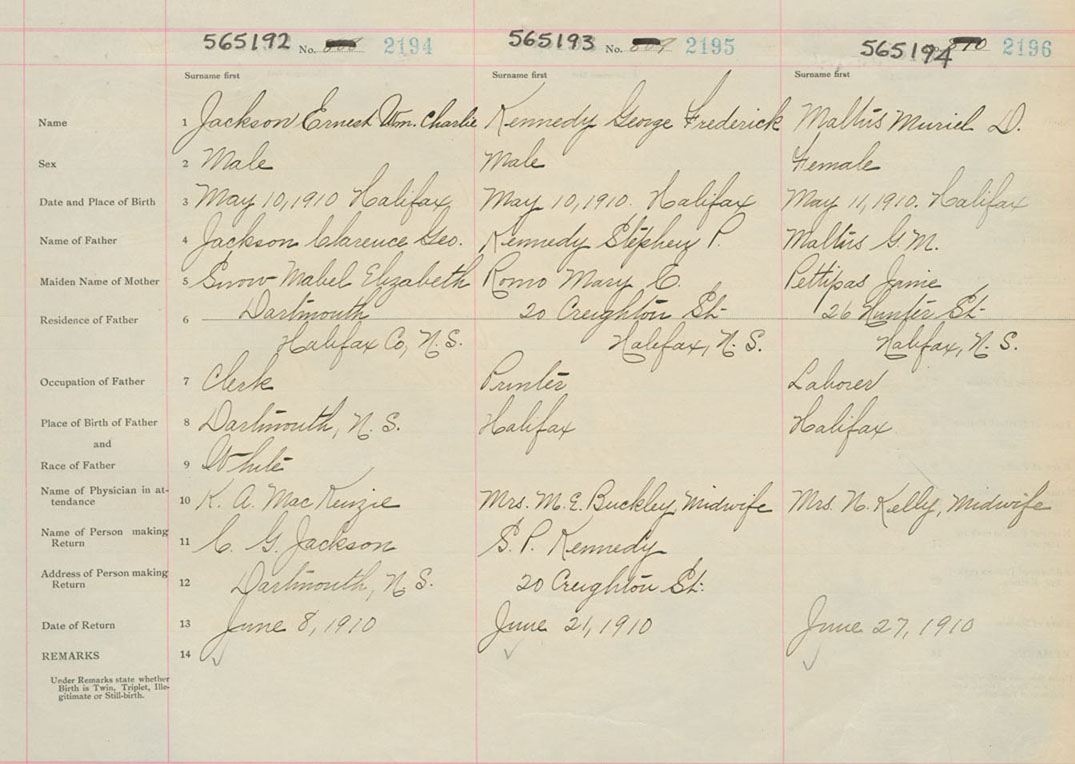 565192 No. 2194 565193 No. 2195 565194 2196
Surname first Surname first Surname first
Name 1 Jackson Ernest Wm. Charlie Kennedy George Frederick Maltus Muriel D.
Sex 2 Male Male Female
Date and Place of Birth 3 May 10, 1910 Halifax May 10, 1910. Halifax May 11, 1910. Halifax
Name of Father 4 Jackson Clarence Geo. Kennedy Stephen P. Maltus G. M.
Maiden Name of Mother 5 Snow Mabel Elizabeth Romo Mary E. Pettipas Janie
Residence of Father 6 Dartmouth 20 Creighton St. 26 Hunter St.
Halifax Co, N.S. Halifax, N.S. Halifax, N.S.
Occupation of Father 7 Clerk Printer Laborer
Place of Birth of Father 8 Dartmouth, N.S. Halifax Halifax
and
Race of Father 9 White
Name of Physician in at-
tendance 10 K. A. MacKenzie Mrs. M. E. Buckley, Midwife Mrs. N. Kelly, Midwife
Name of Person making
Return 11 C. G. Jackson S. P. Kennedy
Address of Person making
Return 12 Dartmouth, N.S. 20 Creighton St.
Date of Return 13 June 8, 1910 June 21, 1910 June 27, 1910
REMARKS 14
Under Remarks state whether
Birth is Twin, Triplet, Ille-
gitimate or Still-birth.